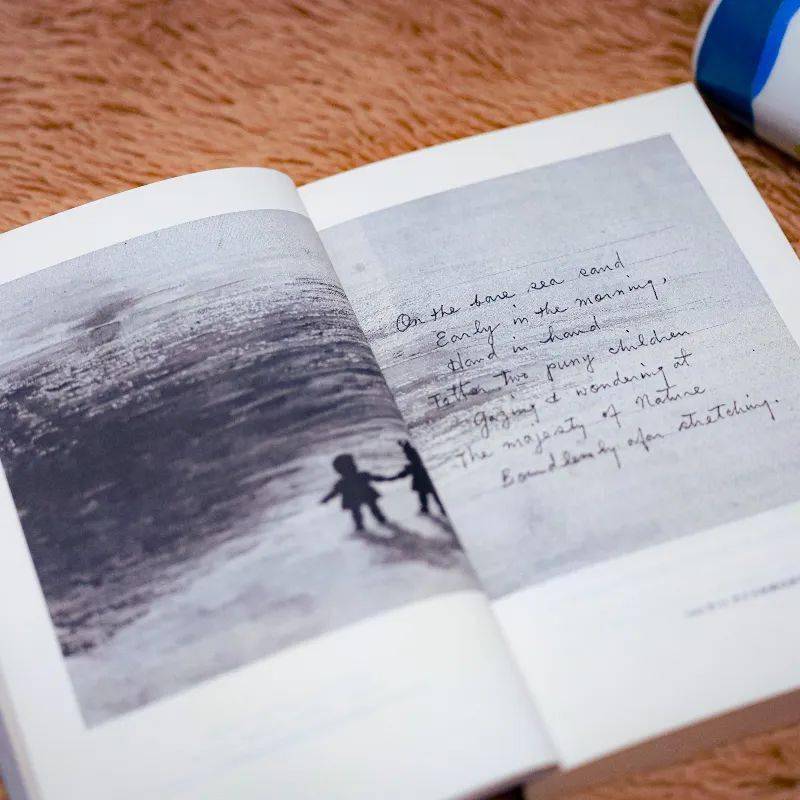 On the bare sea sand
Early in the morning,
Hand in hand
Totter two puny children
Gazing & wondering at
The majesty of Nature
Boundlessly afar stretching.